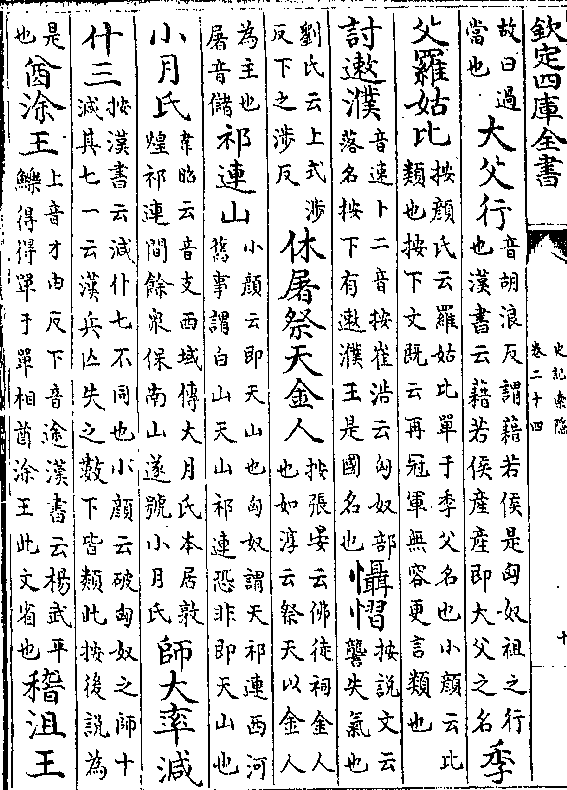 欽定四庫全書
史記索隱
卷二十四
十
故曰過當也大父行音胡浪反謂藉若侯是匈奴祖之行也漢書云藉若侯產產即大父之名季
父羅姑比按顔氏云羅姑比單于季父名也小顔云比類也按下文既云再冠軍無容更言類也
討遬濮音速卜二音按崔浩云匈奴部落名按下有遬濮王是國名也懾慴按說文云讋失氣也
劉氏云上式涉反下之涉反休屠祭天金人按張晏云佛徒祠金人也如淳云祭天以金人
為主也屠音儲祁連山小顔云即天山也匈奴謂天祁連西河舊事謂白山天山祁連恐非即天山也
小月氏韋昭云音支西域傳大月氏本居敦煌祁連間餘衆保南山遂號小月氏師大率減
什三按漢書云減什七不同也小顔云破匈奴之師十減其七一云漢兵亡失之數下皆類此按後說為
是也酋涂王上音才由反下音途漢書云楊武平鱳得得單于單相酋涂王此文省也稽沮王